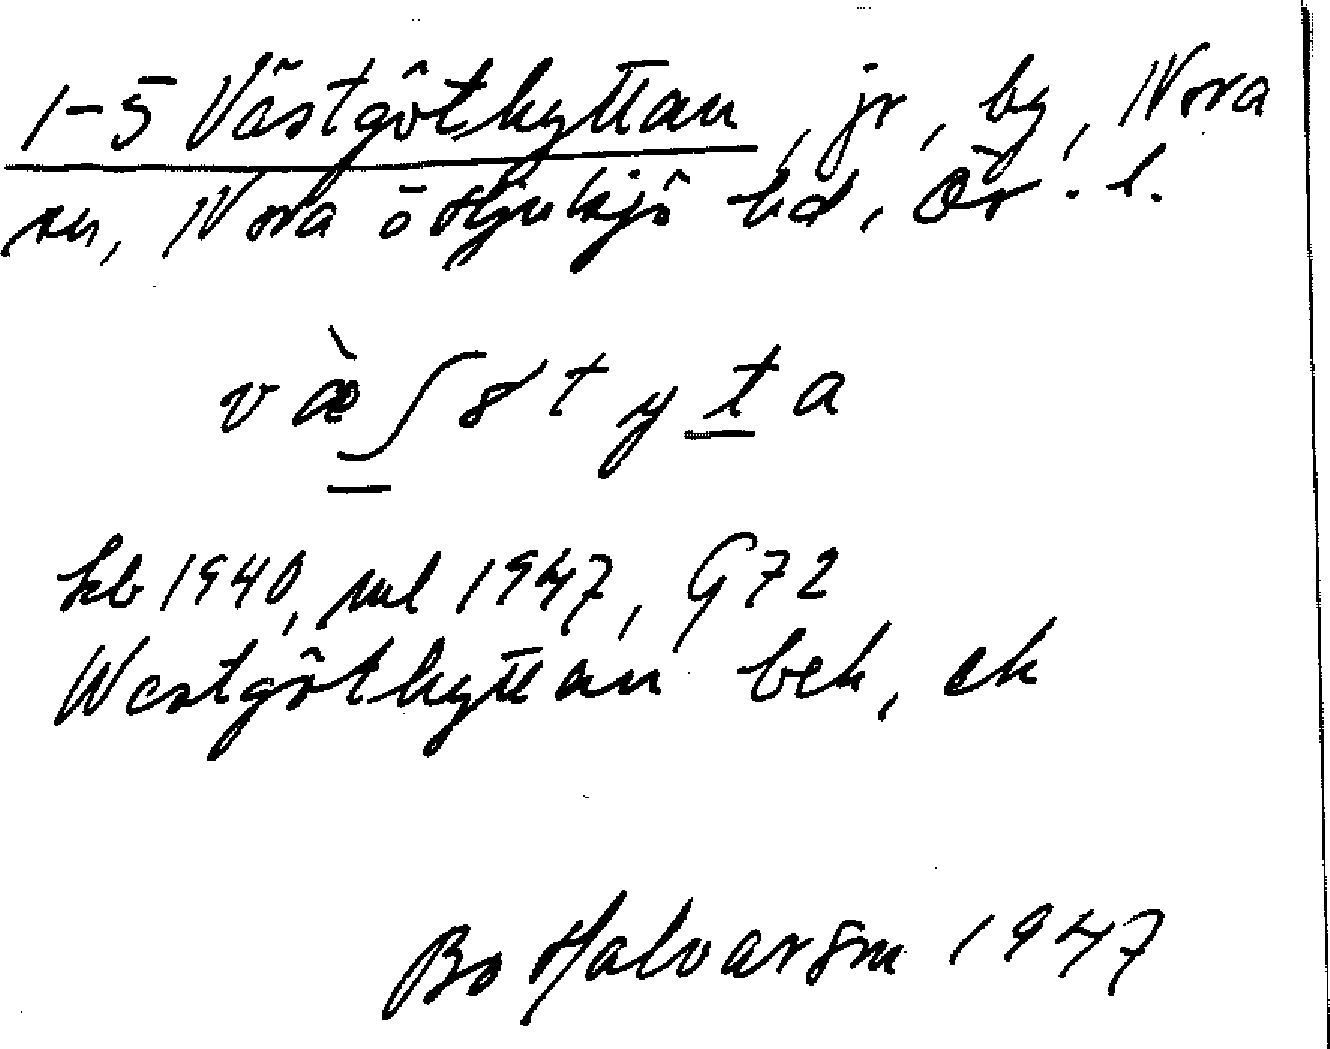 1-5 Västgöthyttan, jr, by, Nora
sn, Nora o Hjulsjö bd, Ör. l.
kb 1940, ml 1947, G72
Westgöthyttan bek, ek
Bo Halvarsson 1947